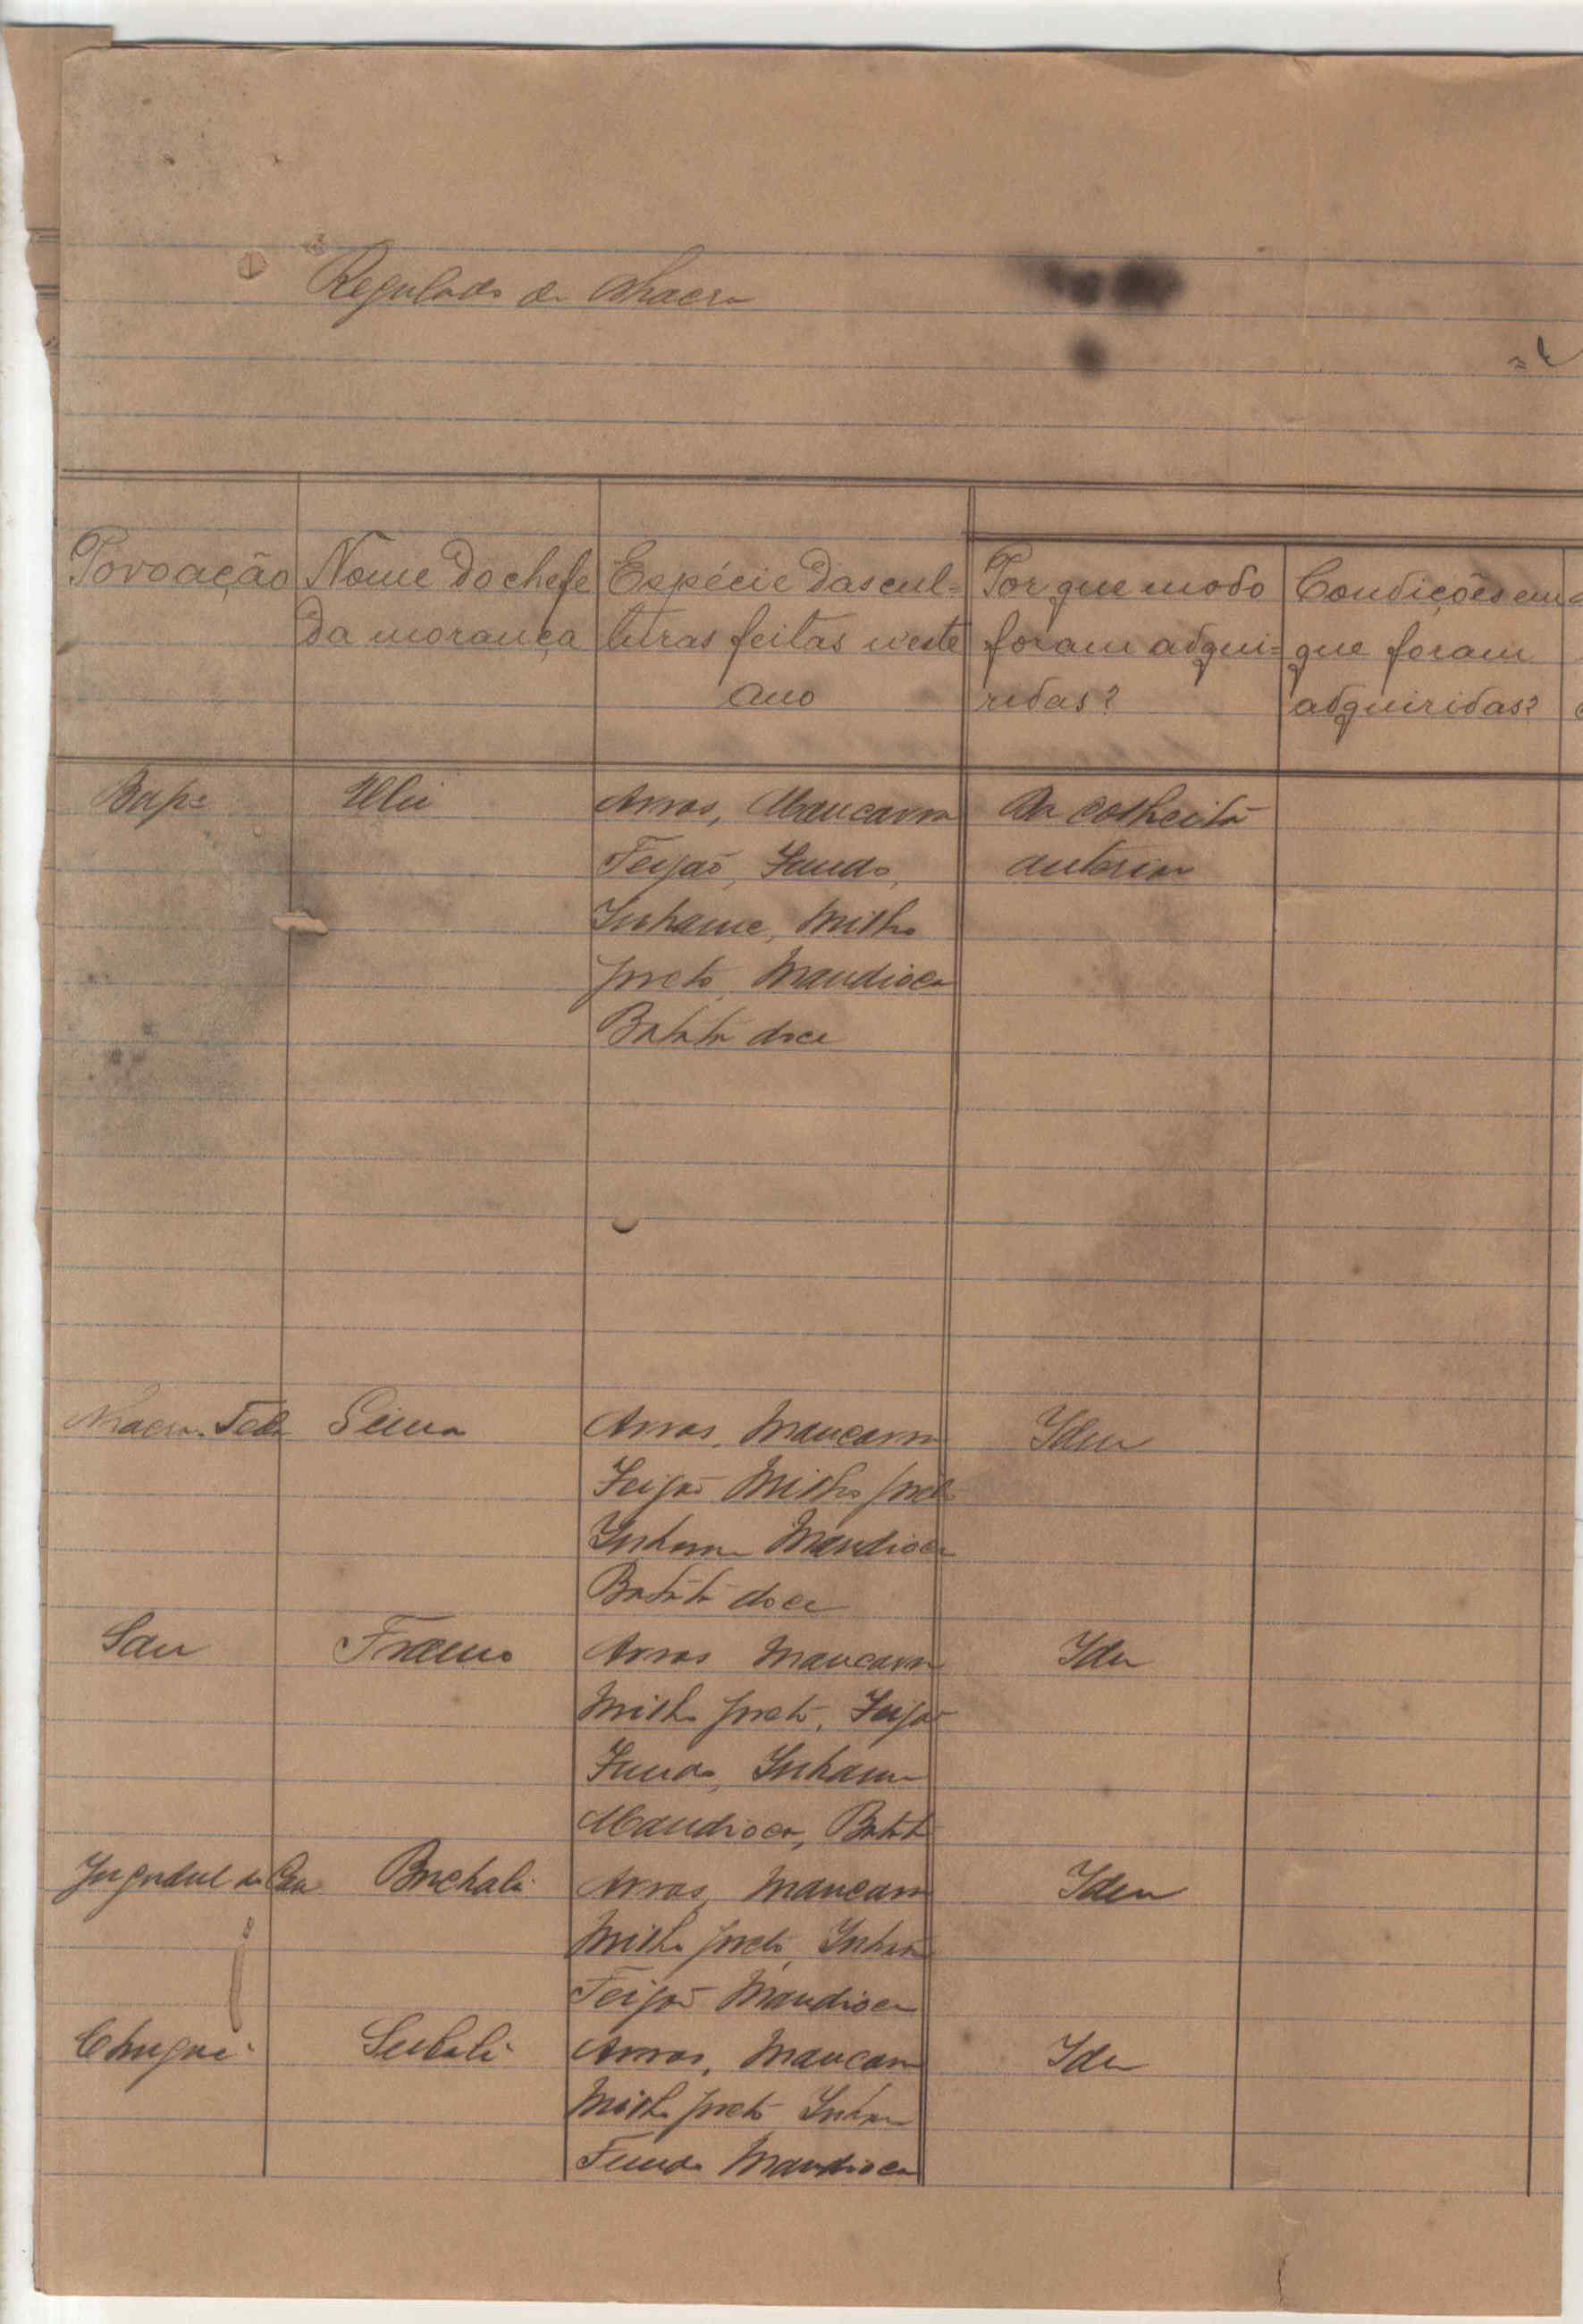 Regulado de Nhacra
Povoação
Nome do chefe
da morança
Espécie das cul=
turas feitas n'este
ano
Por que modo
foram adqui=
ridas?
Condições em
que foram
adquiridas?
Arros, Mancarra
Feijão, Fundo,
Inhame, Milho
preto, Mandioca
Batata doce
Da colheita
anterior
Nhacra Teda
Arros, Mancarra
Feijão Milho preto
Inhame Mandioca
Batata doce
Idem
San
Arros Mancarra
Milho preto, Feijão
Fundo, Inhame
Mandioca, Batata
Idem
Jugudul
Arros, Mancarra
Milho preto, Inhame
Feijão Mandioca
Idem
Chugué
Arros, Mancarra
Milho preto Inhame
Fundo Mandioca
Idem